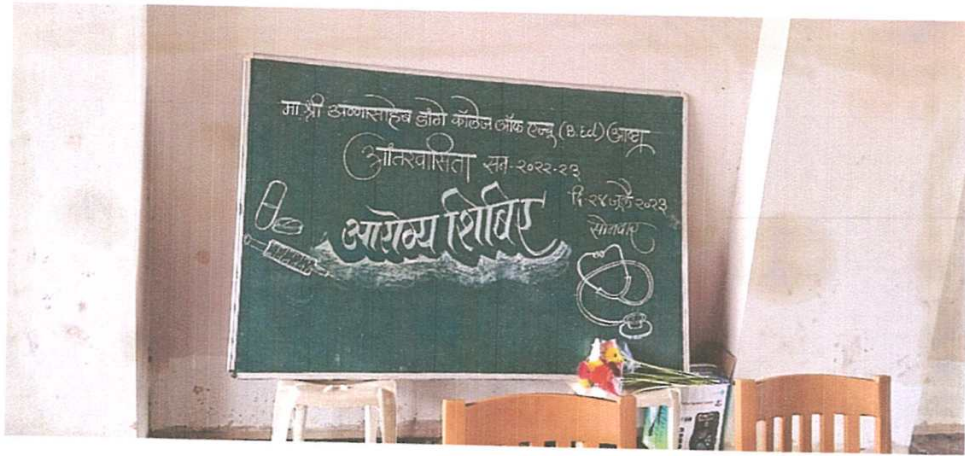 मा. श्री अण्णासाहेब डांगे कॉलेज ऑफ एज्यू (B.Ed) आष्टा
आंतरवासिता सन-२०२२-२३
दि-२४ जुलै २०२३
सोमवार
आरोग्य शिबिर